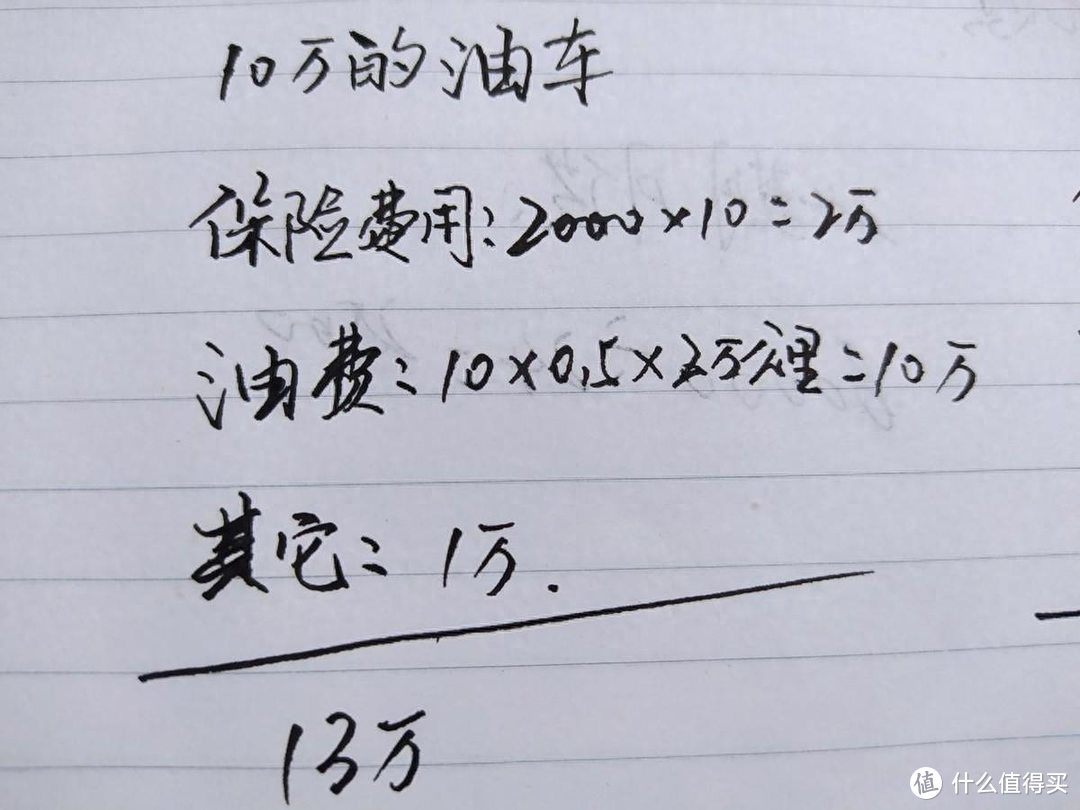 10万的油车
保险费用:2000×10=2万
油费:10×0.5×2万公里=10万
其它:1万.
13万
值 什么值得买